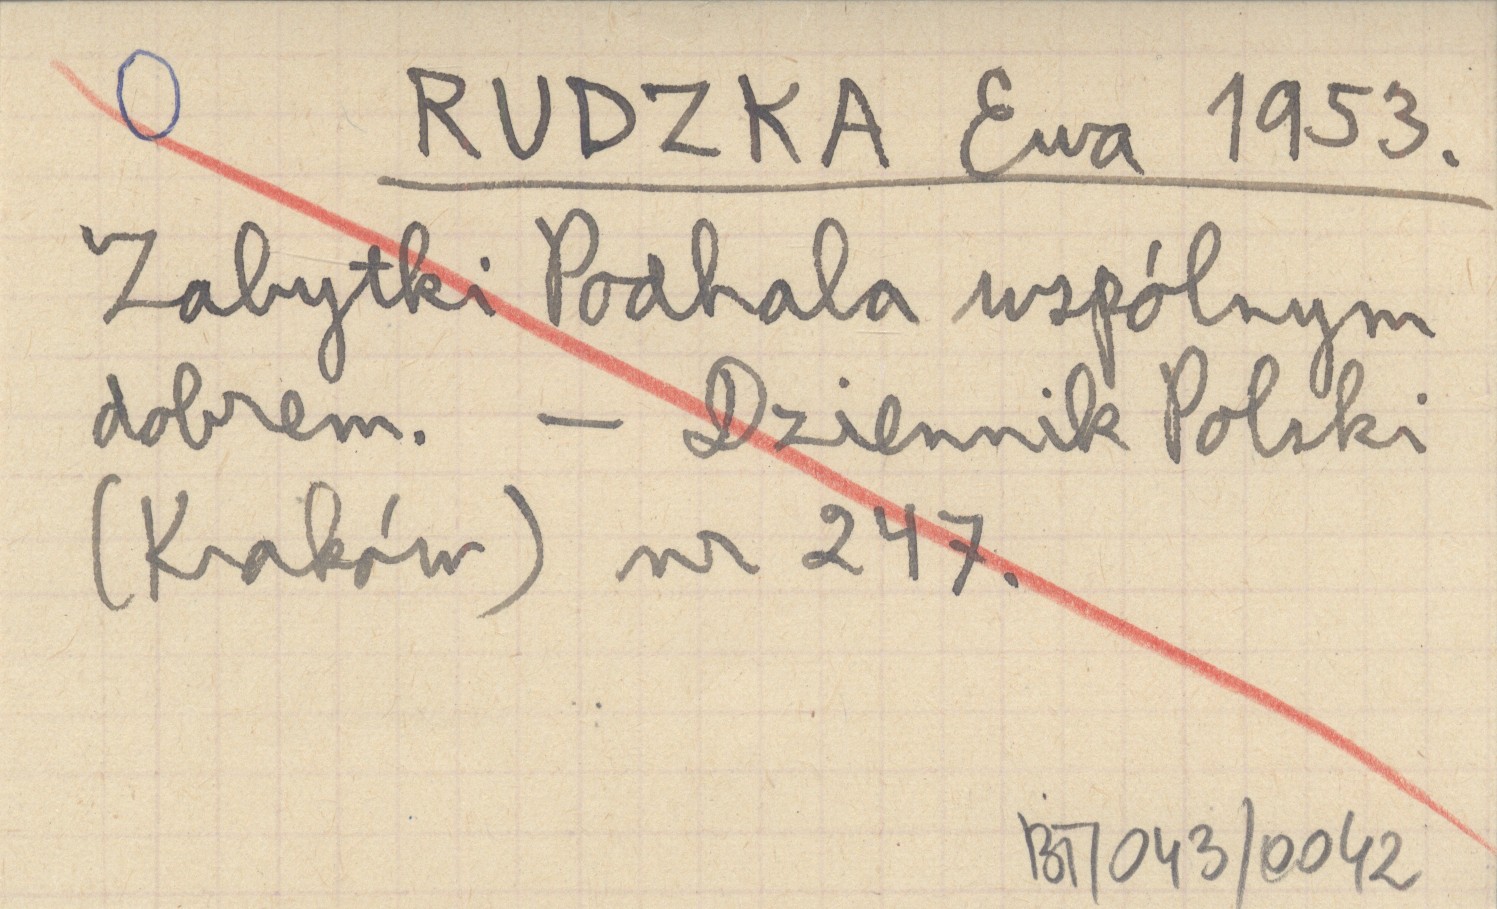 O RUDZKA Ewa 1953.
Zabytki Podhala wspólnym
dobrem. – Dziennik Polski
(Kraków) nr 247.
BT/043/0042